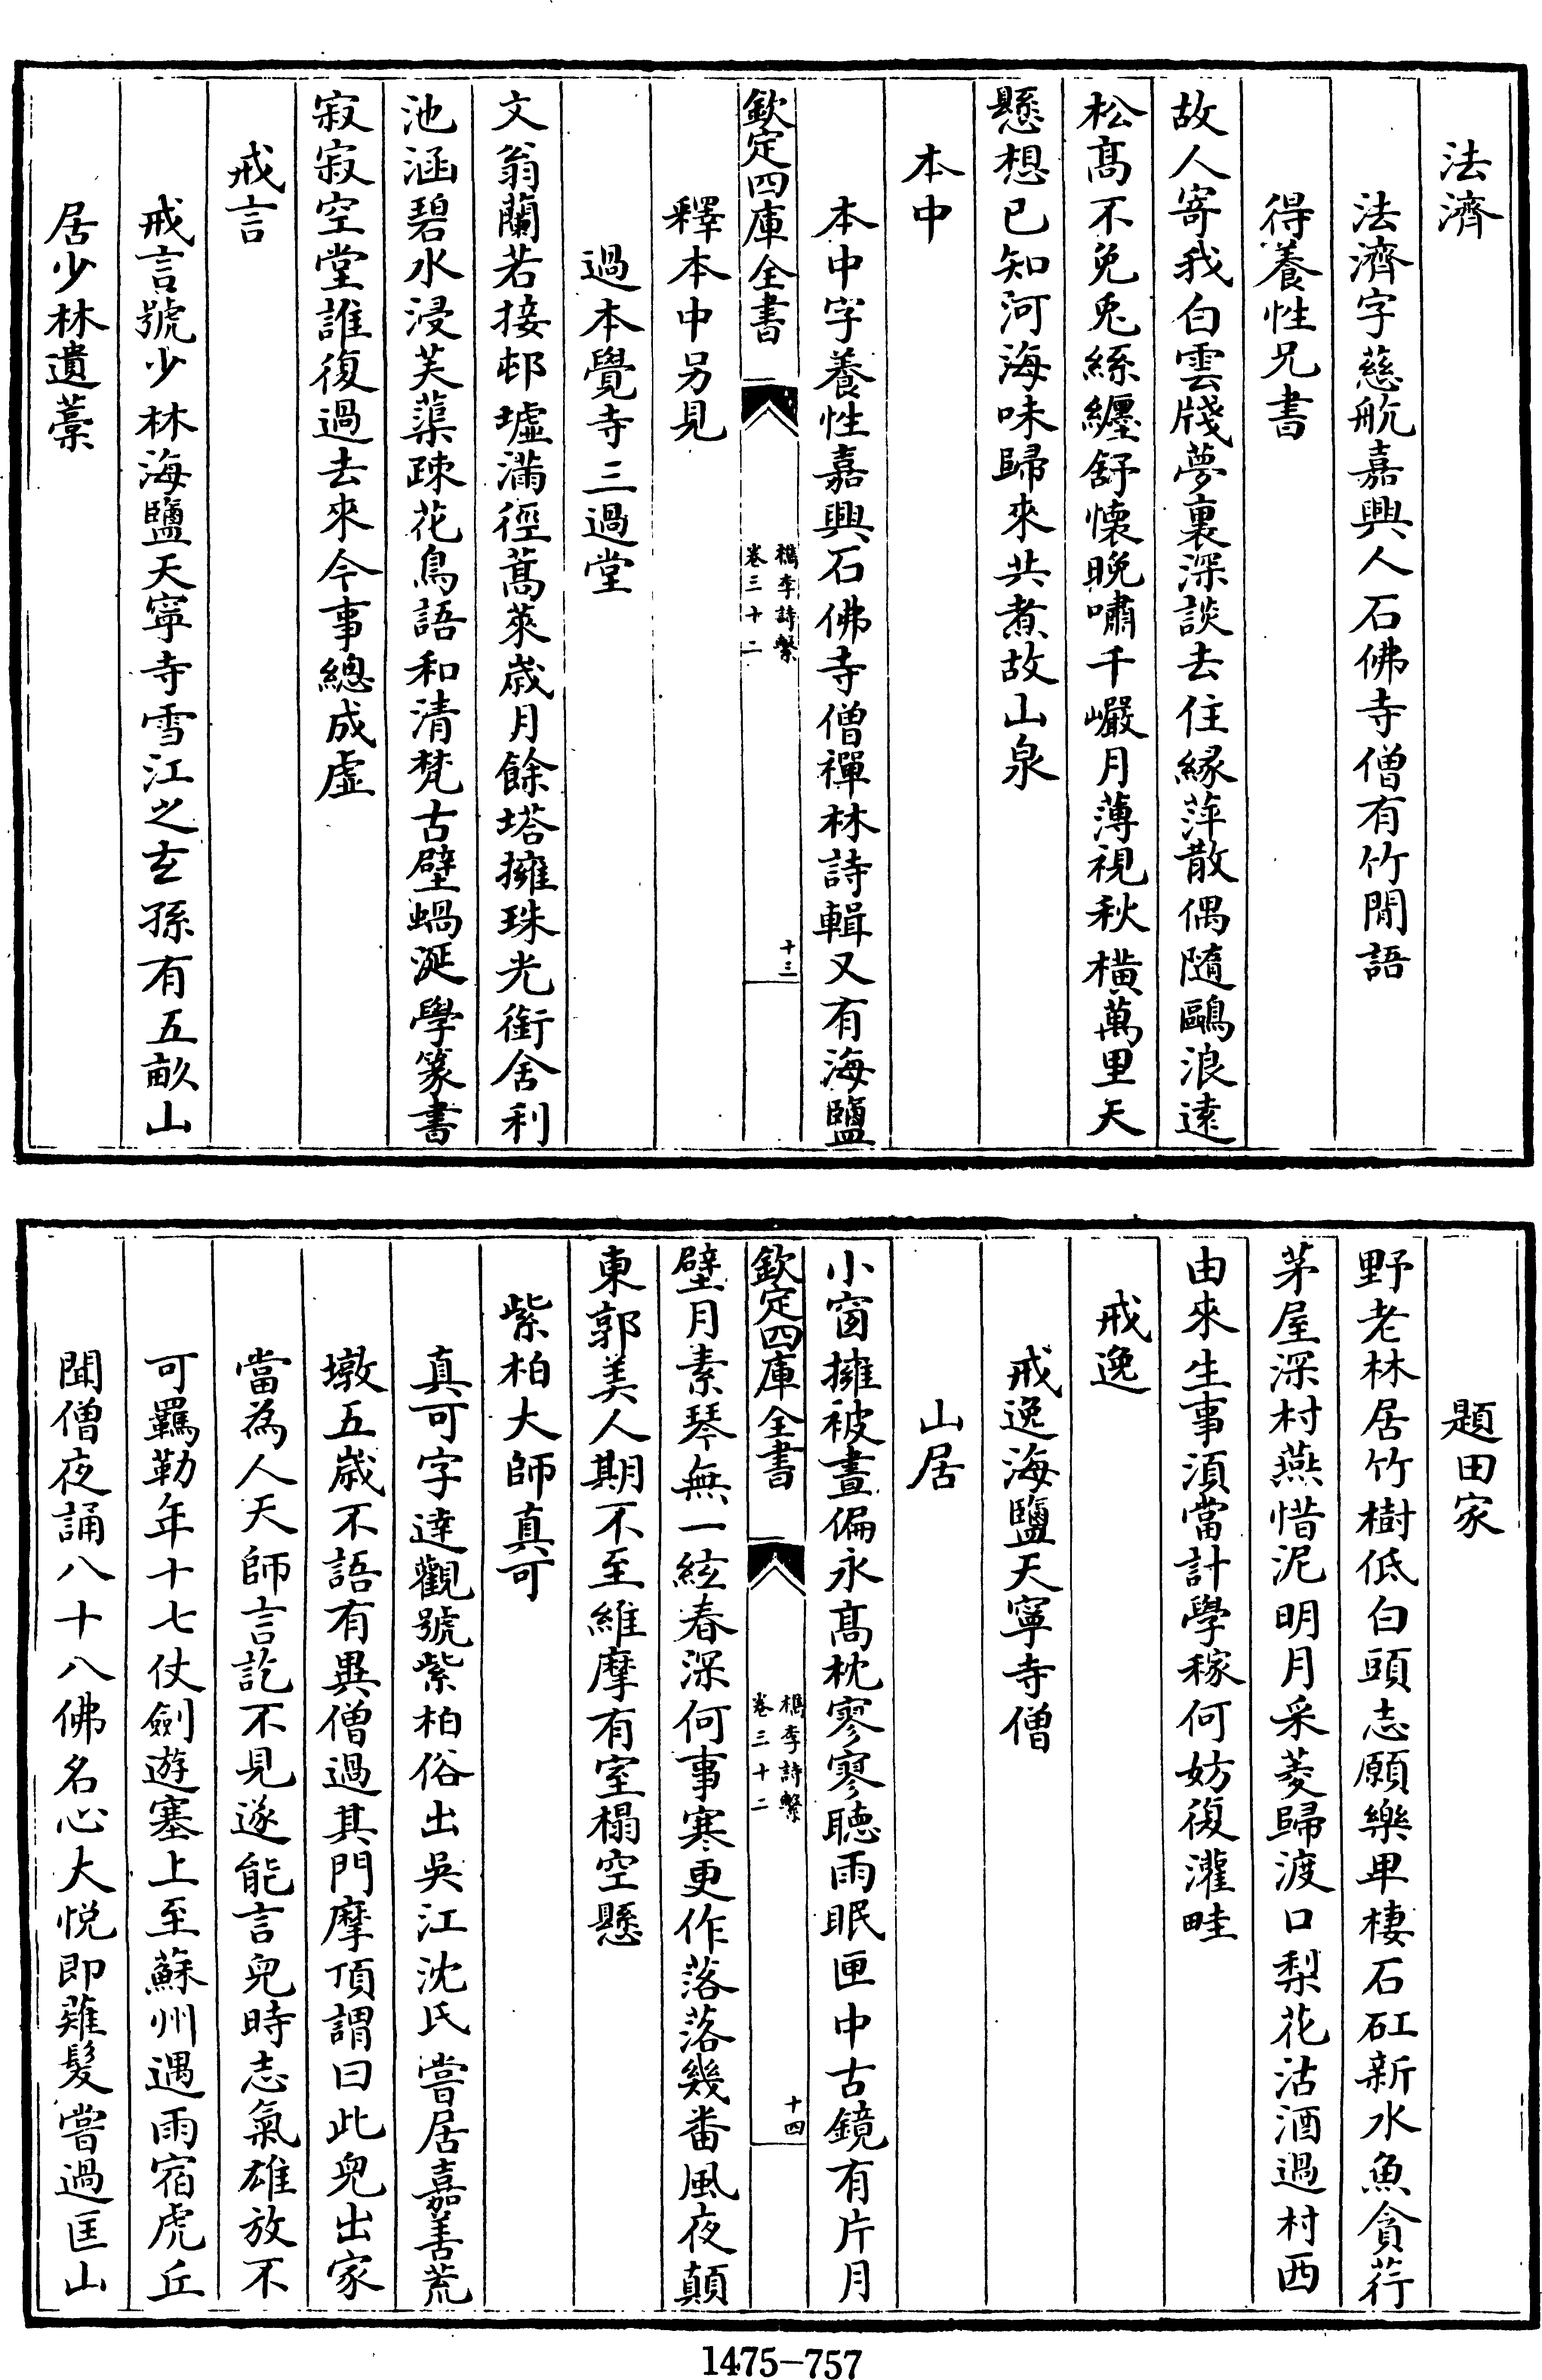 法濟
法濟字慈航嘉興人石佛寺僧有竹閒語
得養性兄書
故人寄我白雲牋夢裏深談去住緣萍散偶隨鷗浪遠
松髙不免兎絲纏舒懷晚嘯千巗月薄視秋橫萬里天
懸想已知河海味歸來共煮故山泉
本中
本中字養性嘉興石佛寺僧禪林詩輯又有海鹽
欽定四庫全書
檇李詩繫
卷三十二
十三
釋本中另見
過本覺寺三過堂
文翁蘭若接邨墟滿徑蒿萊歲月餘塔擁珠光銜舍利
池涵碧水浸芙蕖疎花鳥語和清梵古壁蝸涎學篆書
寂寂空堂誰復過去來今事總成虛
戒言
戒言號少林海鹽天寧寺雪江之𤣥孫有五畝山
居少林遺藁
題田家
野老林居竹樹低白頭志願樂卑棲石矼新水魚貪荇
茅屋深村燕惜泥明月采菱歸渡口梨花沽酒過村西
由來生事湏當計學稼何妨復灌畦
戒逸
戒逸海鹽天寧寺僧
山居
小窗擁被晝偏永髙枕寥寥聽雨眠匣中古鏡有片月
欽定四庫全書
檇李詩繫
卷三十二
十四
壁月素琴無一絃春深何事寒更作落落幾番風夜顛
東郭美人期不至維摩有室榻空懸
紫柏大師真可
真可字達觀號紫柏俗出吳江沈氏嘗居嘉善荒
墩五歲不語有異僧過其門摩頂謂曰此兒出家
當為人天師言訖不見遂能言兒時志氣雄放不
可羈勒年十七仗劍遊塞上至蘇州遇雨宿虎丘
聞僧夜誦八十八佛名心大悅即薙髮嘗過匡山
1475-757